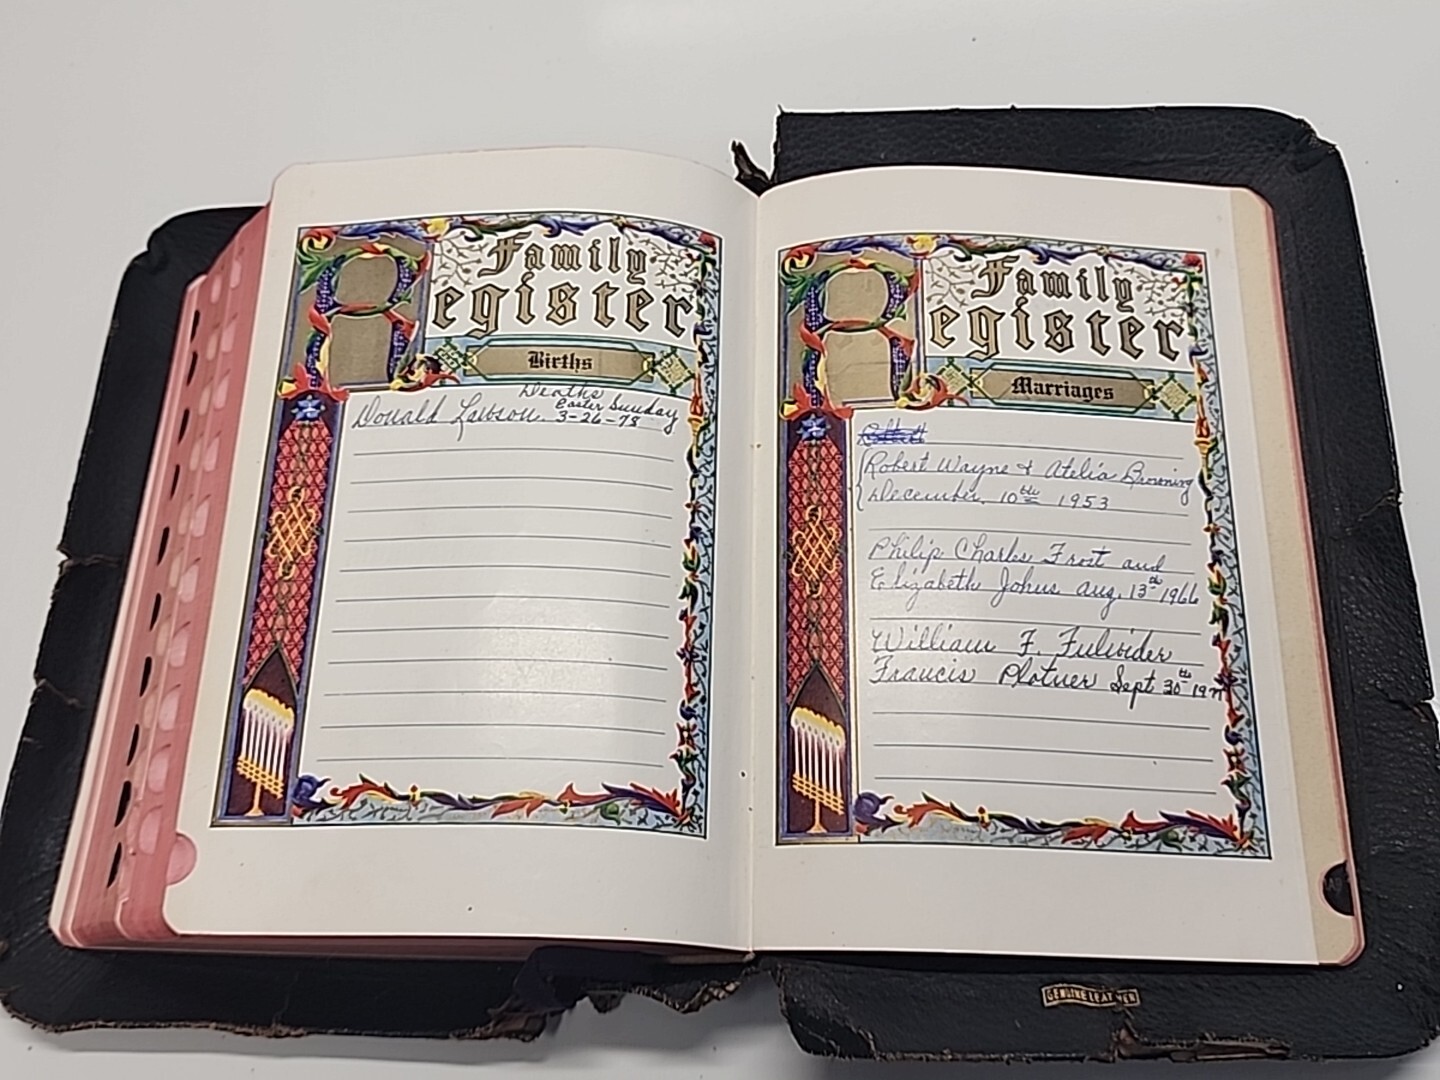 Family
Register
Births
Deaths
Easter Sunday
Donald Lawson 3-26-78
Family
Register
Marriages
Robert Wayne & Atelia Browning
December 10th 1953
Philip Charles Frost and
Elizabeth Johns Aug. 13th 1966
William F. Fulwider
Francis Plotner Sept 30th
GENUINE LEATHER